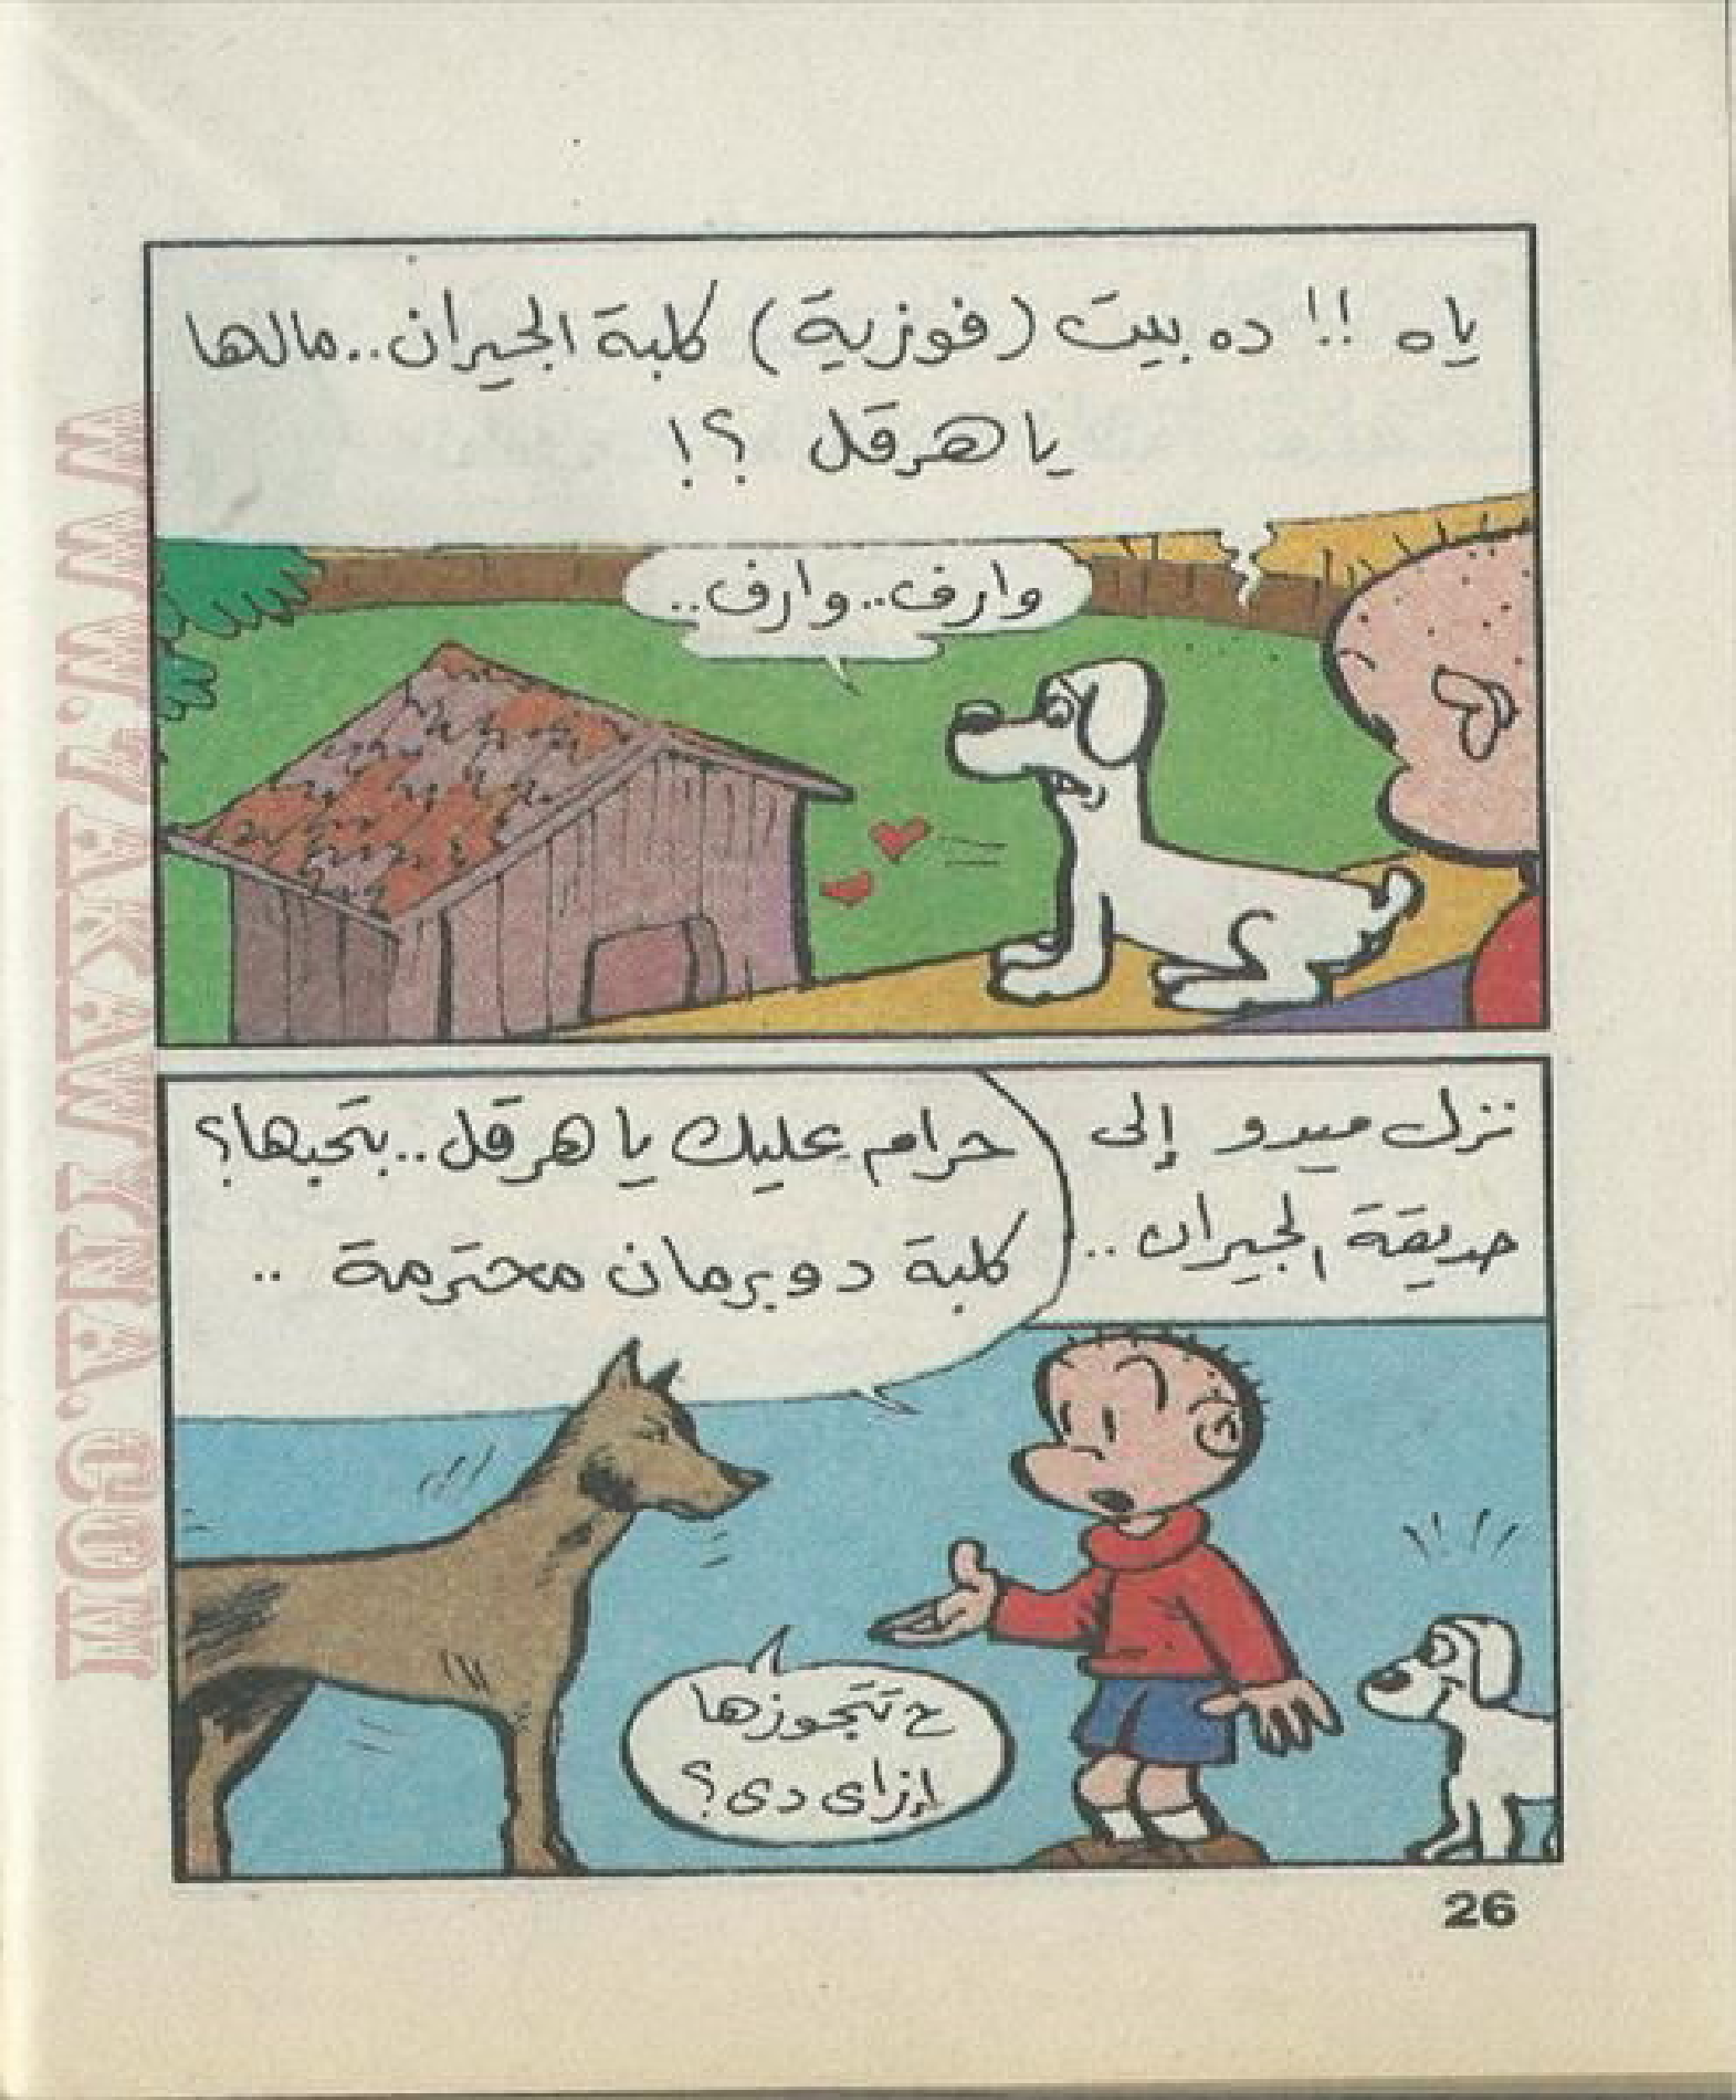 ياه !! ده بيت (فوزية) كلبة الجيران..مالها
يا هرقل ؟!
وارف..وارف..
نزل ميدو إلى
حديقة الجيران..
حرام عليك يا هرقل..بتحبها؟
كلبة دوبرمان محترمة ..
ح تتجوزها
إزاى دى؟
26
WWW.7AKAWTNA.COM